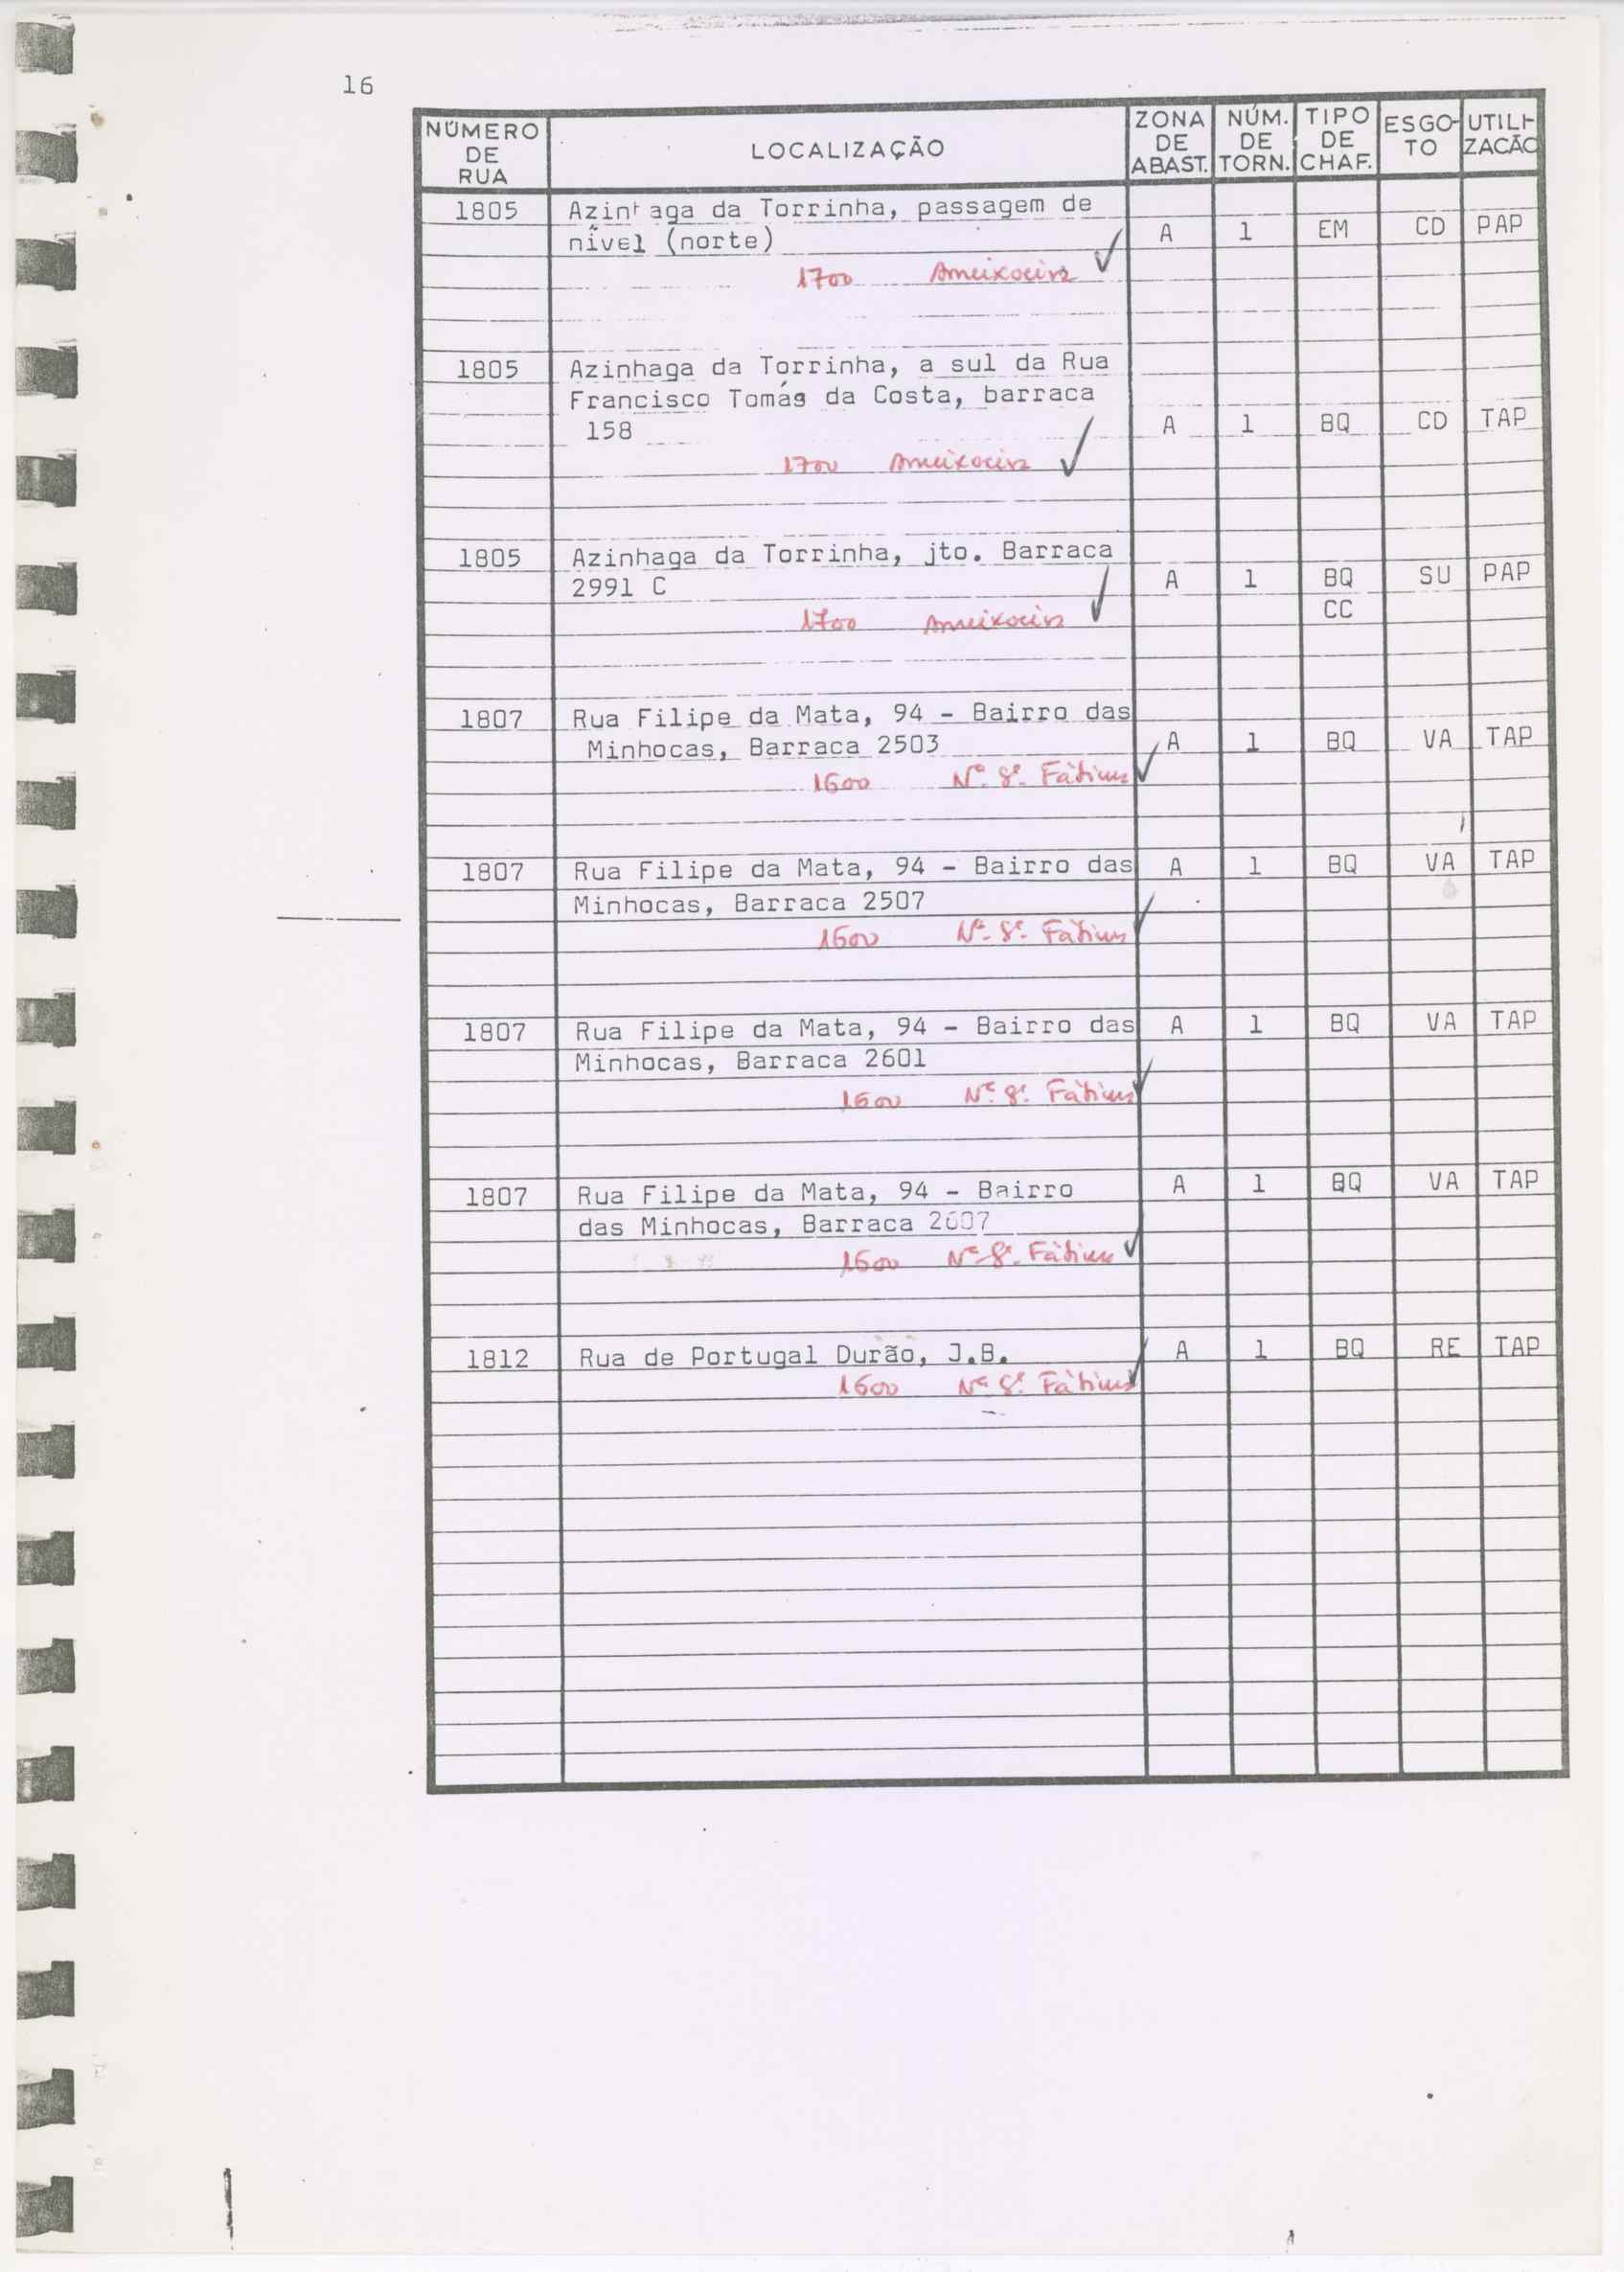 16
NÚMERO DE RUA LOCALIZAÇÃO ZONA DE ABAST. NÚM. DE TORN. TIPO DE CHAF. ESGO-TO UTILI-ZACÃO
1805 Azinhaga da Torrinha, passagem de
nível (norte) A 1 EM CD PAP
1700 Ameixoeira
1805 Azinhaga da Torrinha, a sul da Rua
Francisco Tomás da Costa, barraca
158 A 1 BQ CD TAP
1700 Ameixoeira
1805 Azinhaga da Torrinha, jto. Barraca
2991 C A 1 BQ SU PAP
CC
1700 Ameixoeira
1807 Rua Filipe da Mata, 94 - Bairro das
Minhocas, Barraca 2503 A 1 BQ VA TAP
1600 Nª Sª Fàtima
1807 Rua Filipe da Mata, 94 - Bairro das A 1 BQ VA TAP
Minhocas, Barraca 2507
1600 Nª Sª Fàtima
1807 Rua Filipe da Mata, 94 - Bairro das A 1 BQ VA TAP
Minhocas, Barraca 2601
1600 Nª Sª Fàtima
1807 Rua Filipe da Mata, 94 - Bairro A 1 BQ VA TAP
das Minhocas, Barraca 2607
1600 Nª Sª Fàtima
1812 Rua de Portugal Durão, J.B. A 1 BQ RE TAP
1600 Nª Sª Fàtima